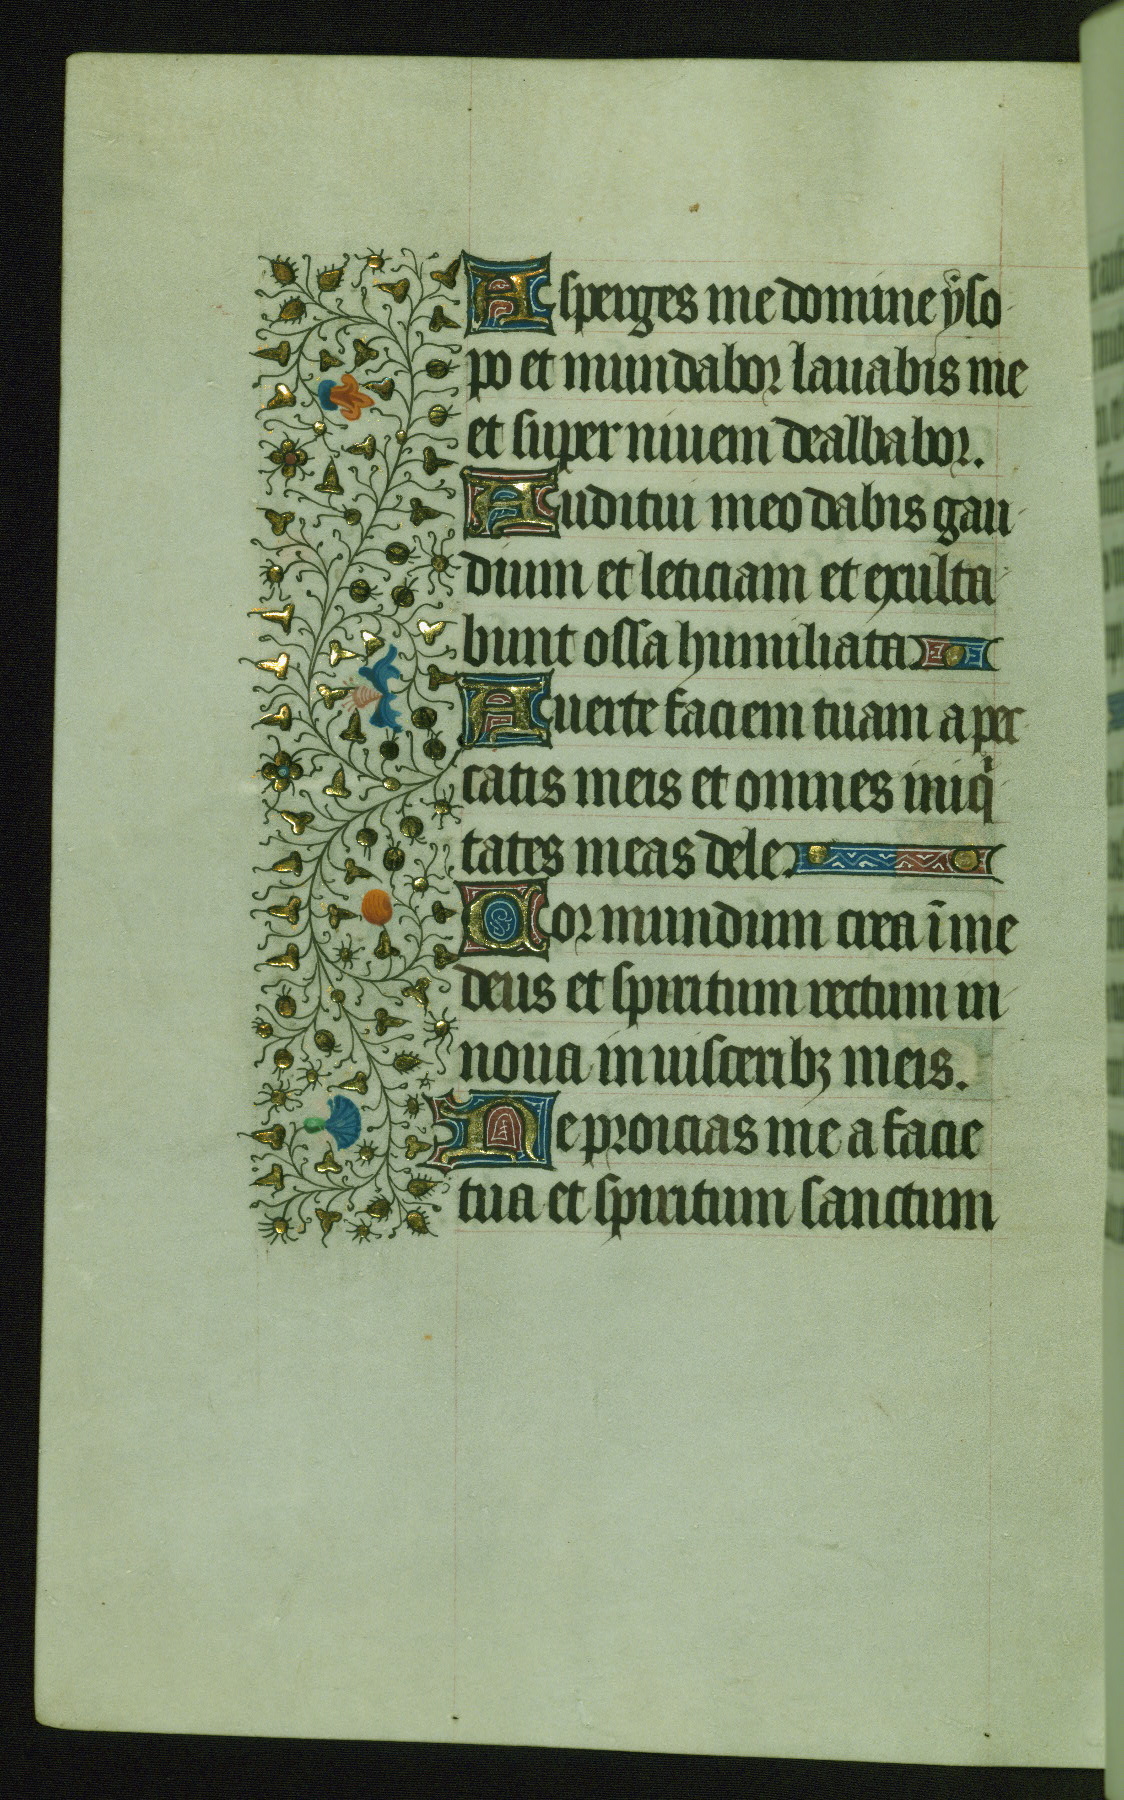 Asperges me domine ẏso
po et mundabor lauabis me
et super niuem dealbabor.
Auditui meo dabis gau
dium et leticiam et exulta
bunt ossa humiliata
Auerte faciem tuam a pec
catis meis et omnes iniqͥ
tates meas dele
Cor mundum crea ī me
deus et spiritum rectum in
noua in uisceribꝫ meis.
Ne proicias me a facie
tua et spiritum sanctum